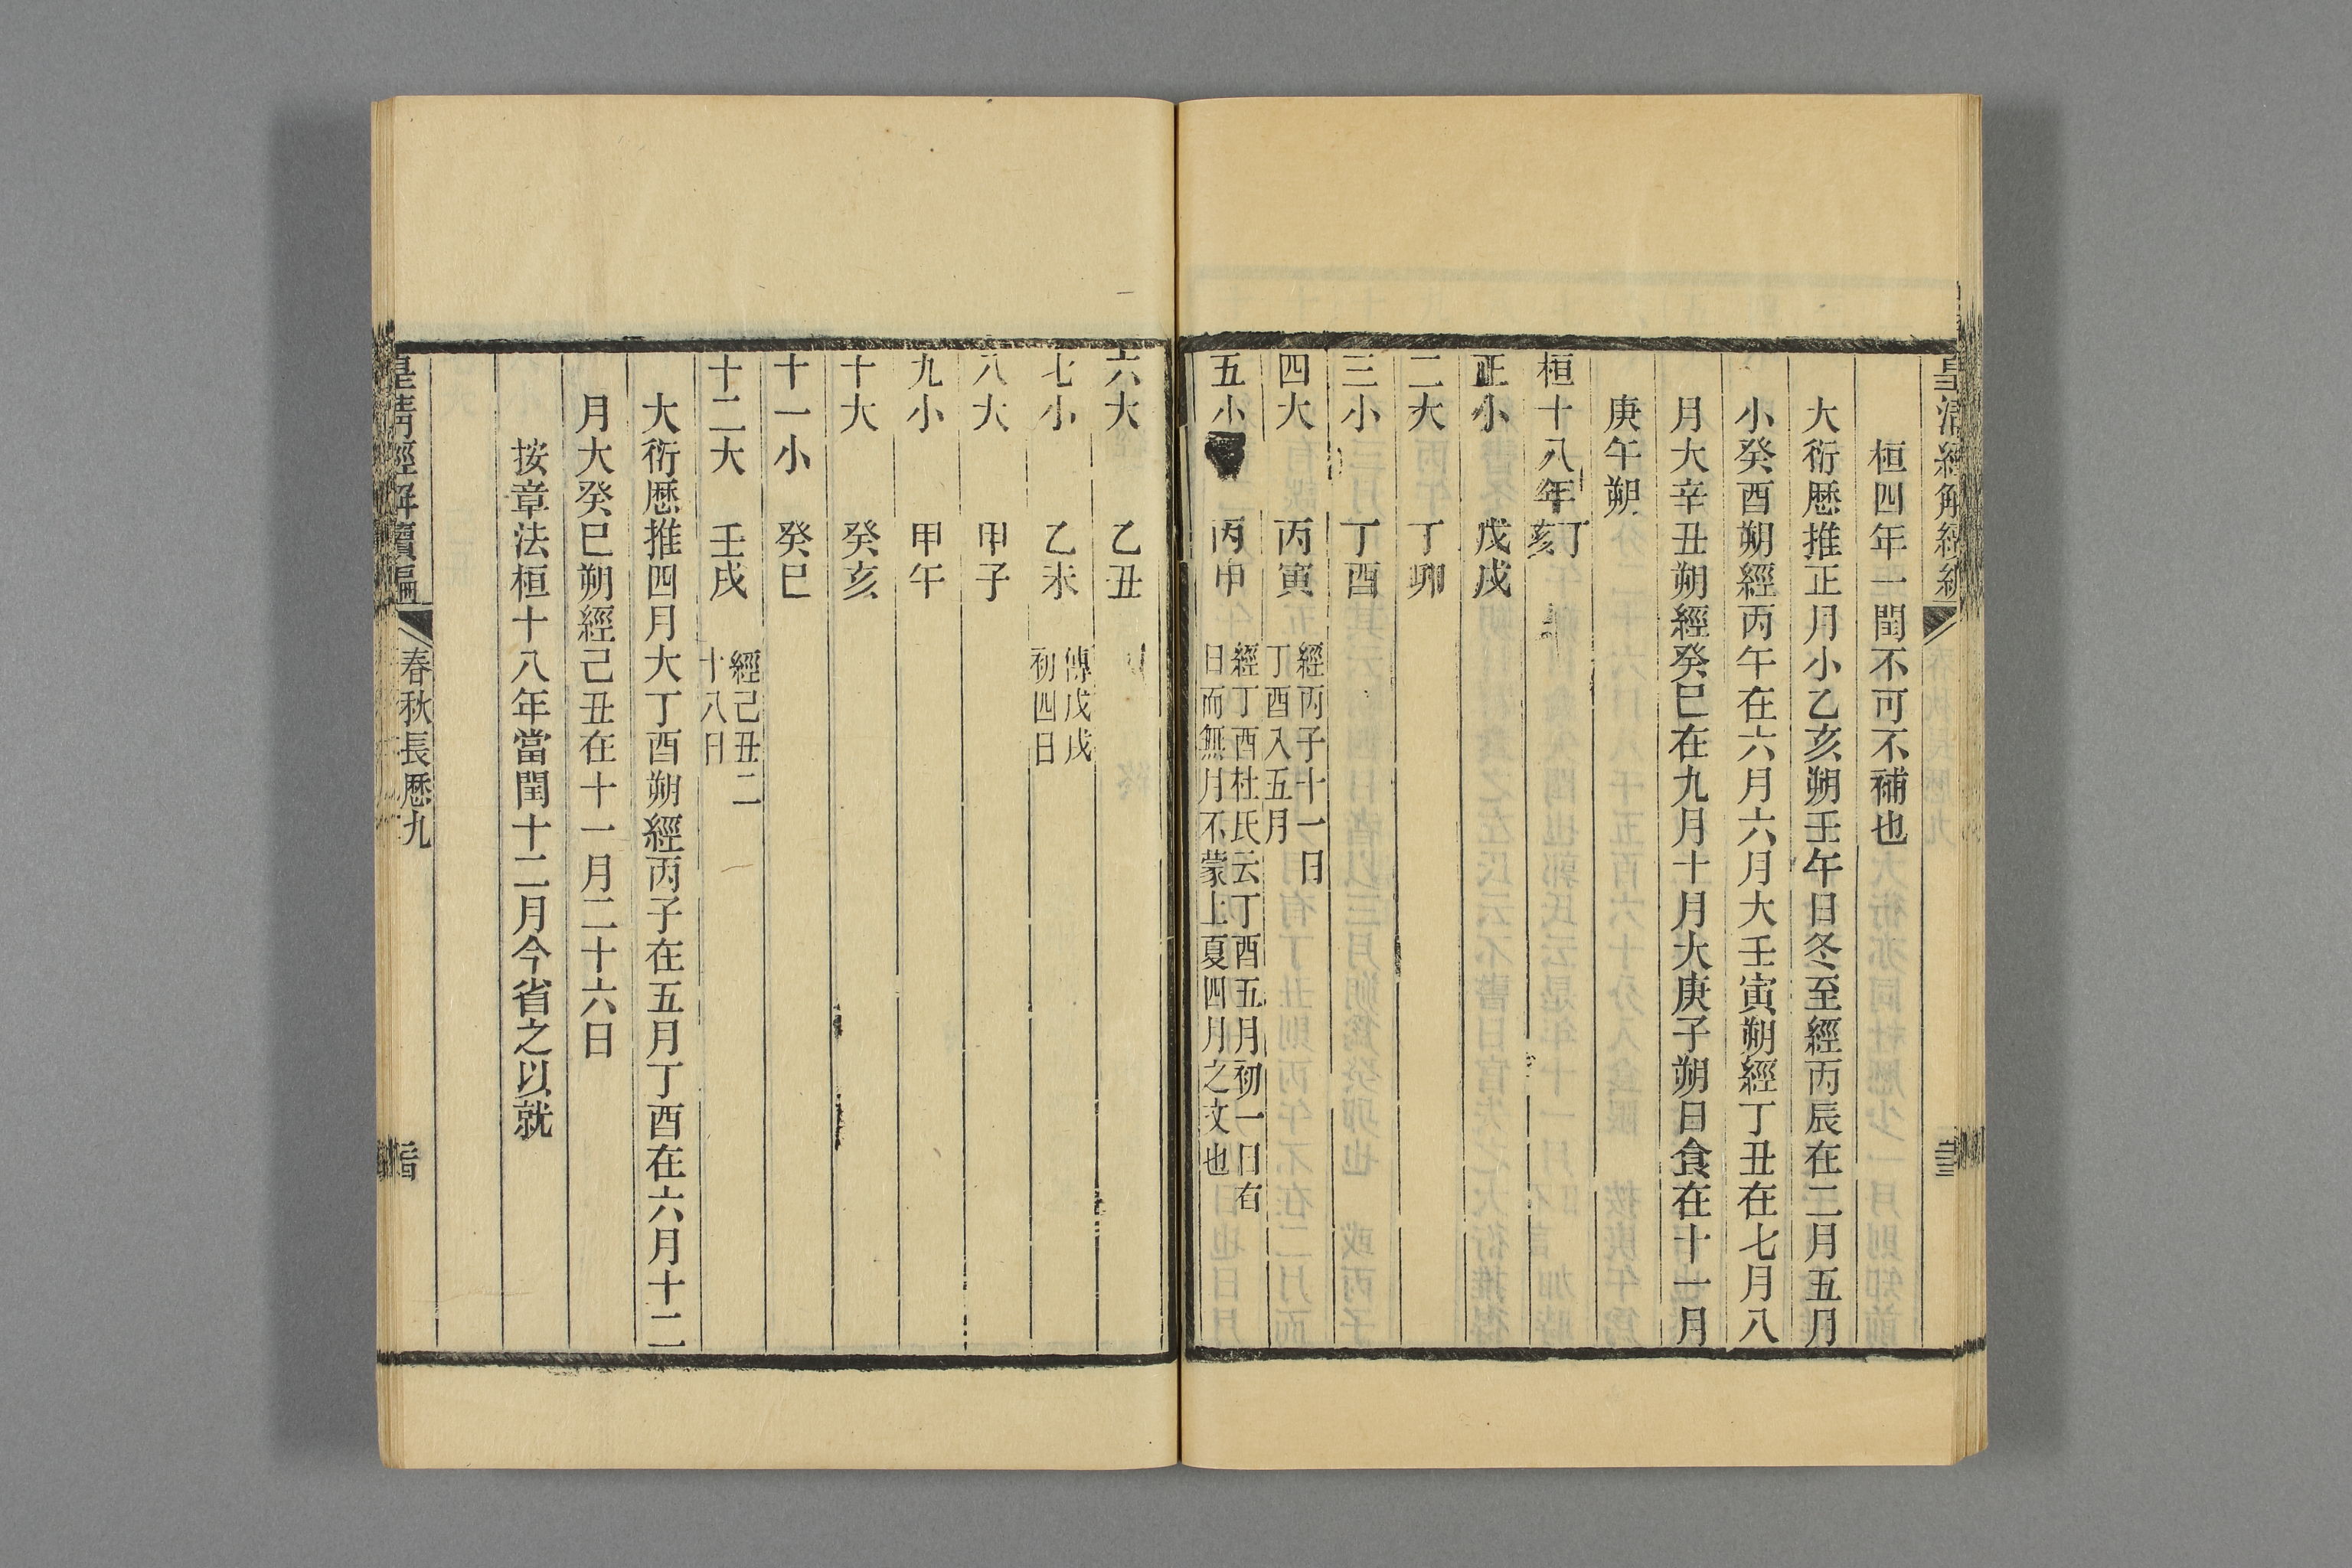 桓四年一閏不可不補也
大衍厯推正月小乙亥朔壬午日冬至經丙辰在二月五月
小癸酉朔經丙午在六月六月大壬寅朔經丁丑在七月八
月大辛丑朔經癸巳在九月十月大庚子朔日食在十一月
庚午朔
桓十八年丁亥
正小 戊戌
二大 丁卯
三小 丁酉
四大 丙寅 經丙子十一日
丁酉入五月
五小 丙申 經丁酉杜氏云丁酉五月初一日有
日而無月不蒙上夏四月之文也
六大 乙丑
七小 乙未 傳戊戌
初四日
八大 甲子
九小 甲午
十大 癸亥
十一小 癸巳
十二大 壬戌 經己丑二
十八日
大衍厯推四月大丁酉朔經丙子在五月丁酉在六月十二
月大癸巳朔經己丑在十一月二十六日
按章法桓十八年當閏十二月今省之以就
皇清經解續編 春秋長厯九